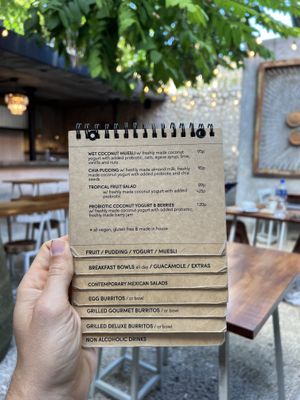 WET COCONUT MUESLI w/ freshly made coconut 90p
yogurt with added probiotic, oats, agave syrup, lime,
vanilla and nuts
CHIA PUDDING w/ freshly made almond milk, freshly 90p
made coconut yogurt with added probiotic, and chia
seeds
TROPICAL FRUIT SALAD 99p
w/ freshly made coconut yogurt with added +20p
probiotic
PROBIOTIC COCONUT YOGURT & BERRIES 120p
w/ freshly made coconut yogurt with added probiotic,
freshly made berry jam
• all vegan, gluten free & made in house
FRUIT / PUDDING / YOGURT / MUESLI
BREAKFAST BOWLS all day / GUACAMOLE / EXTRAS
CONTEMPORARY MEXICAN SALADS
EGG BURRITOS / or bowl
GRILLED GOURMET BURRITOS / or bowl
GRILLED DELUXE BURRITOS / or bowl
NON ALCOHOLIC DRINKS